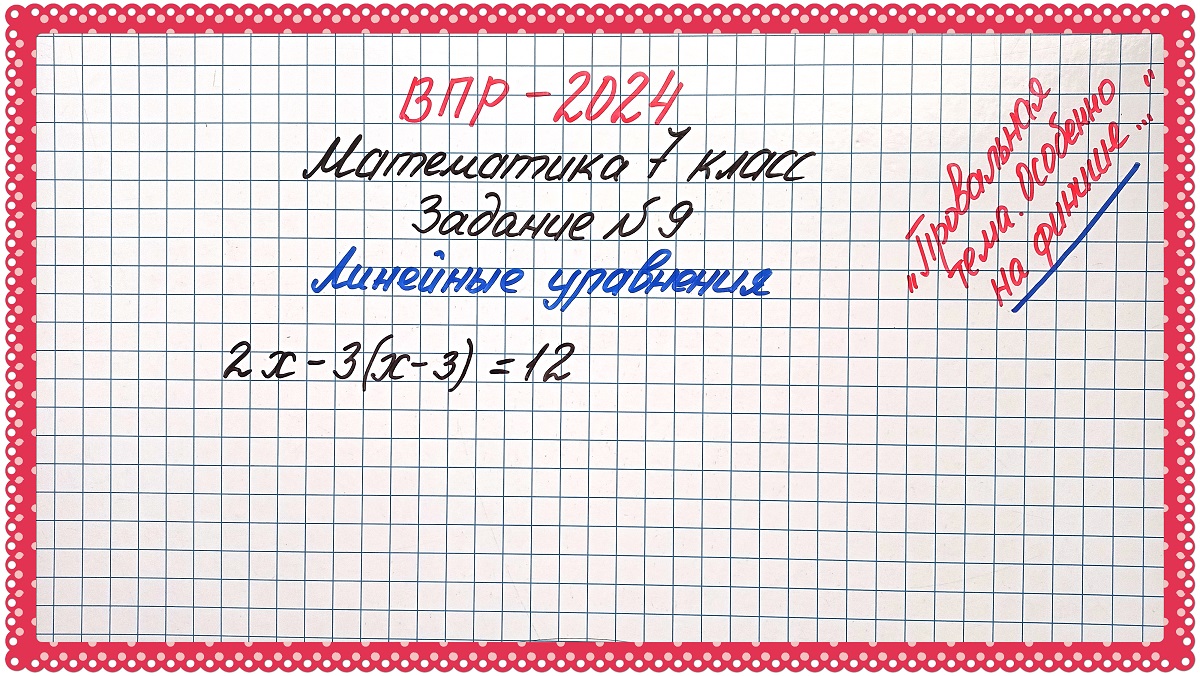 ВПР - 2024
Математика 7 класс
Задание №9
Линейные уравнения
2x - 3(x - 3) = 12
„Провальная
тема. Особенно
на финише..."